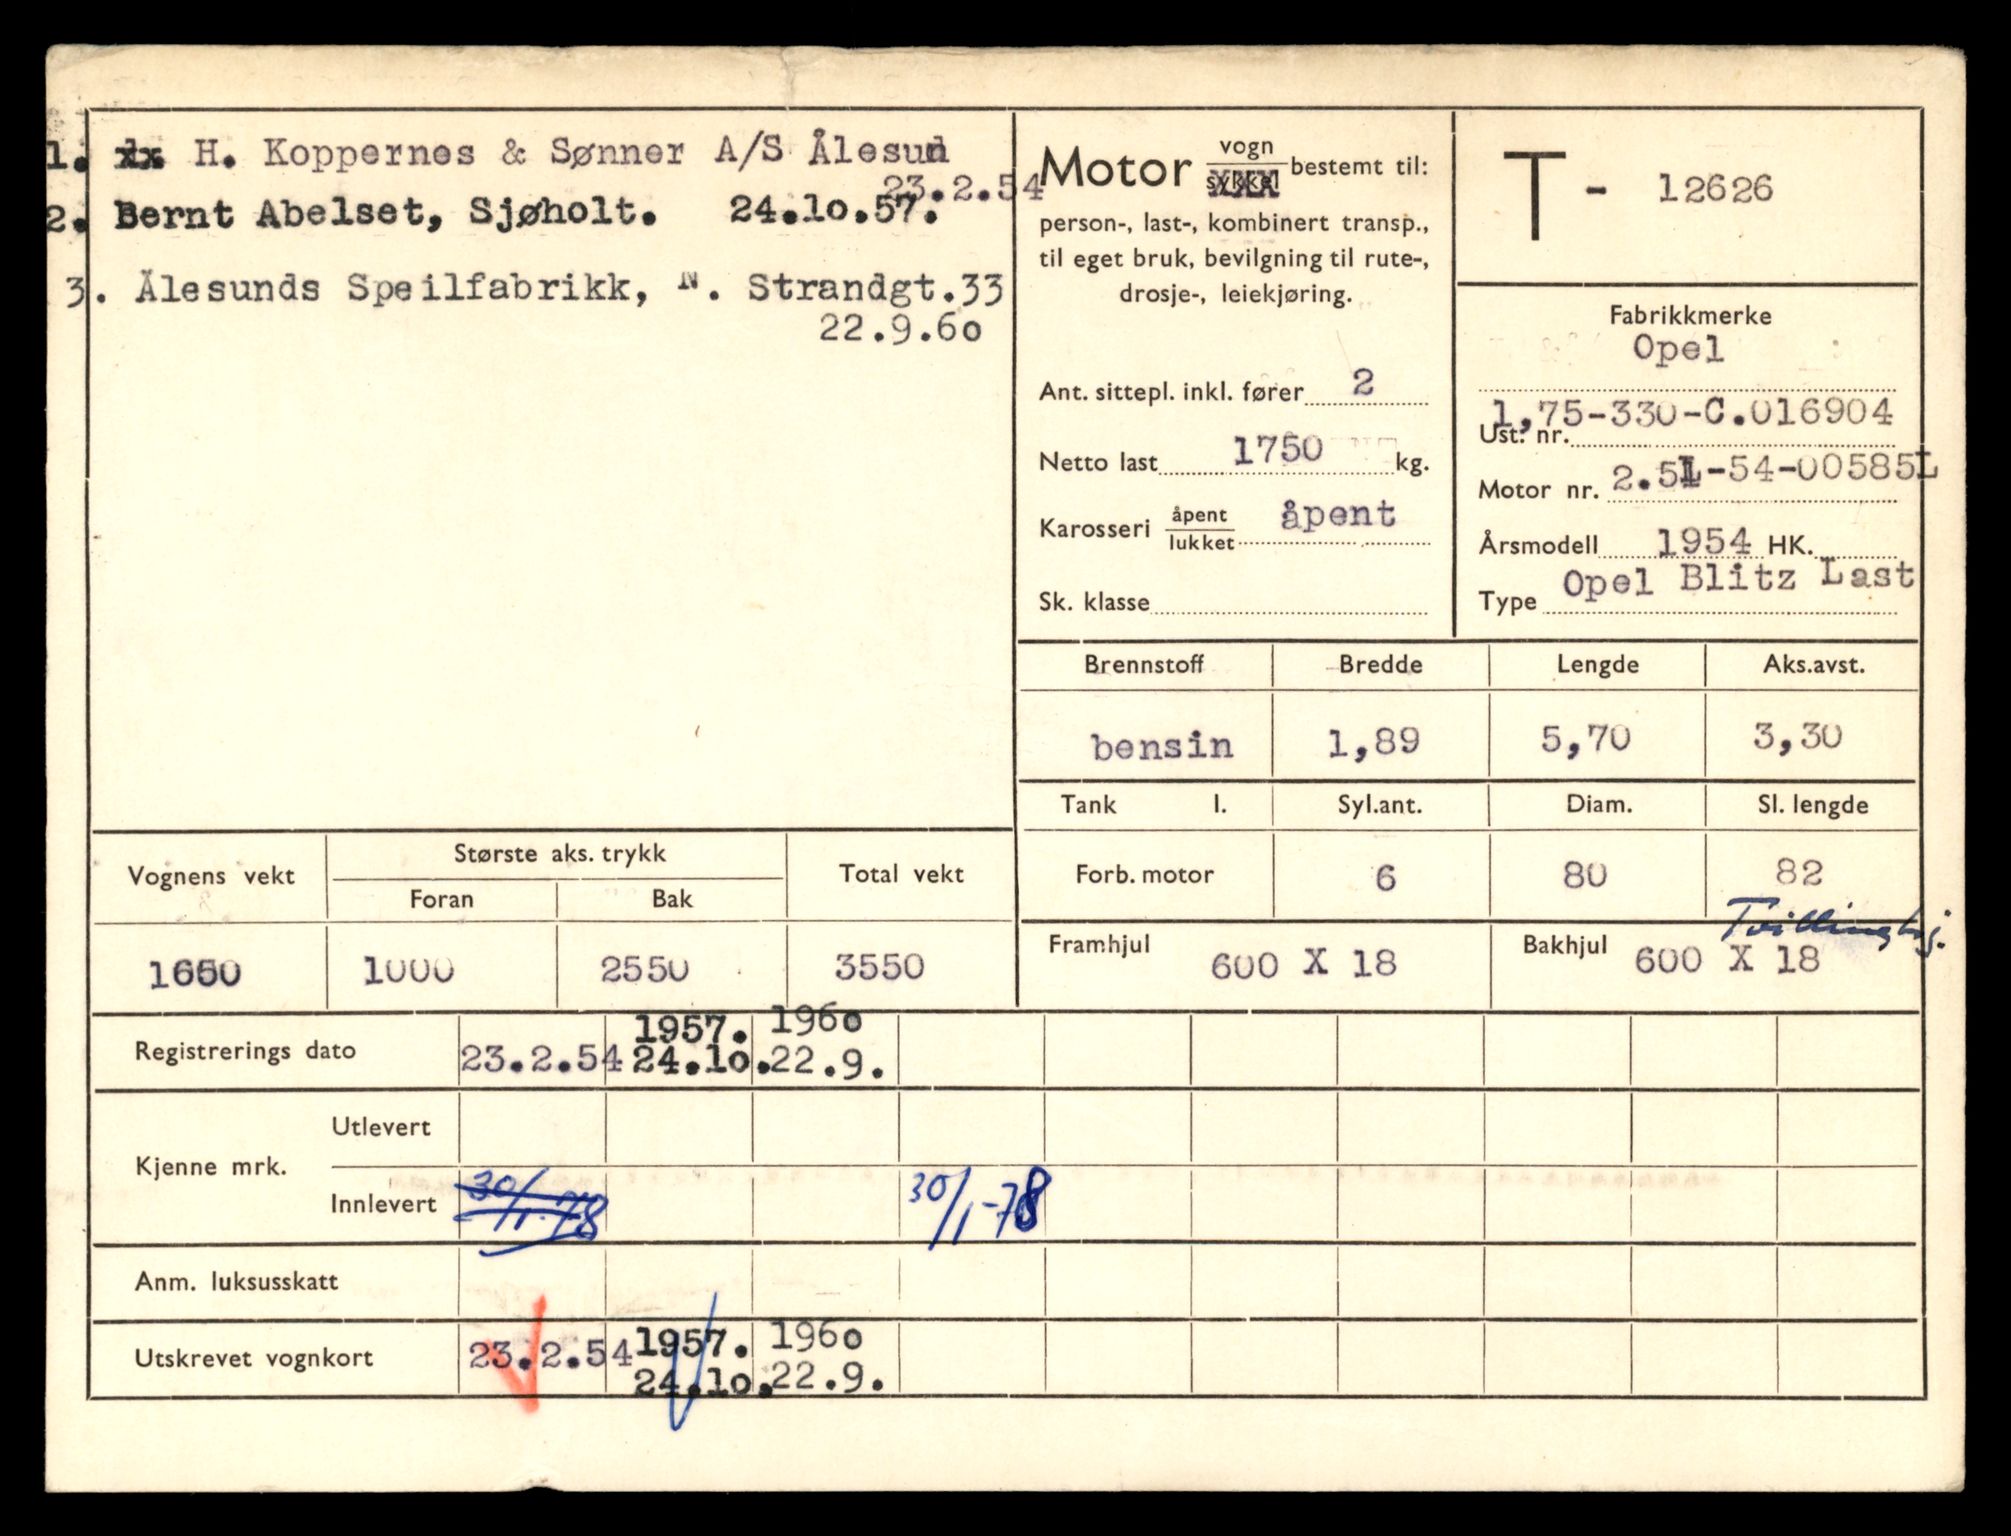 1. H. Koppernes & Sønner A/S Ålesun
23.2.54
2. Bernt Abelset, Sjøholt. 24.10.57.
3. Ålesunds Speilfabrikk, N. Strandgt.33
22.9.60
Motor vogn/sykkel bestemt til:
person-, last-, kombinert transp.,
til eget bruk, bevilgning til rute-,
drosje-, leiekjøring.
Ant. sittepl. inkl. fører 2
Netto last 1750 kg.
Karosseri åpent/lukket åpent
Sk. klasse
T - 12626
Fabrikkmerke
Opel
Ust. nr. 1,75-330-C.016904
Motor nr. 2.5L-54-00585L
Årsmodell 1954 HK.
Type Opel Blitz Last
Brennstoff Bredde Lengde Aks.avst.
bensin 1,89 5,70 3,30
Tank l. Syl.ant. Diam. Sl. lengde
Forb. motor 6 80 82
Tvillinghj.
Framhjul 600 X 18 Bakhjul 600 X 18
Vognens vekt Største aks. trykk Total vekt
Foran Bak
1650 1000 2550 3550
1957. 1960
Registrerings dato 23.2.54 24.10. 22.9.
Kjenne mrk. Utlevert
Innlevert 30/1-78 30/1-78
Anm. luksusskatt
1957. 1960
Utskrevet vognkort 23.2.54 24.10. 22.9.